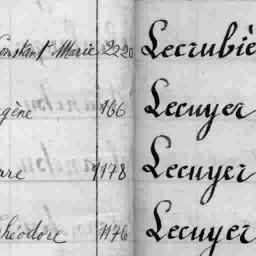 Constant Marie 2220 Lecrubiè
gène 166 Lecuyer
are 1178 Lecuyer
héodore 1176 Lecuyer